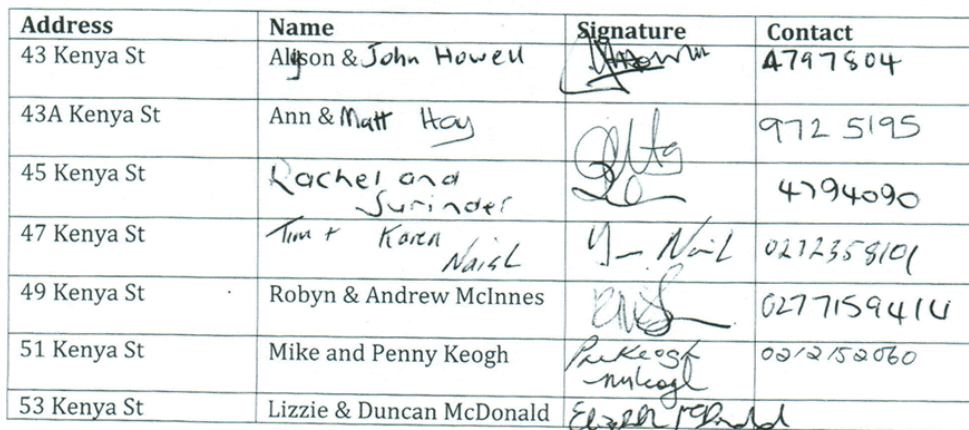 Address Name Signature Contact
43 Kenya St Alyson & John Howell 4797804
43A Kenya St Ann & Matt Hay 972 5195
45 Kenya St Rachel and Surinder 4794090
47 Kenya St Tim + Karen Naish 0272358101
49 Kenya St Robyn & Andrew McInnes
51 Kenya St Mike and Penny Keogh PM Keogh 0212152060
53 Kenya St Lizzie & Duncan McDonald